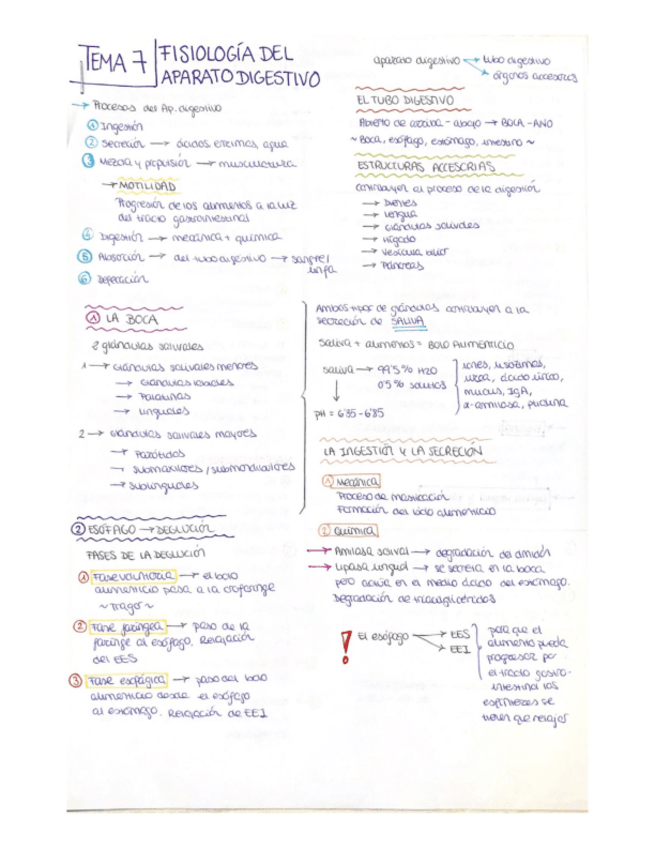 TEMA 7
FISIOLOGÍA DEL
APARATO DIGESTIVO
→ Procesos del Ap. digestivo
① Ingestión
② Secreción → ácidos, enzimas, agua
③ Mezcla y propulsión → musculatura
→ MOTILIDAD
Progresión de los alimentos a la luz
del tracto gastrointestinal
④ Digestión → mecánica + química
⑤ Absorción → del tubo digestivo → sangre/
linfa
⑥ Defecación
aparato digestivo → tubo digestivo
→ órganos accesorios
EL TUBO DIGESTIVO
Abierto de arriba - abajo → BOCA - ANO
~ Boca, esófago, estómago, intestino ~
ESTRUCTURAS ACCESORIAS
contribuyen al proceso de la digestión
→ Dientes
→ Lengua
→ Glándulas salivales
→ Hígado
→ Vesícula biliar
→ Páncreas
① LA BOCA
2 glándulas salivales
1 → Glándulas salivales menores
→ Glándulas labiales
→ Palatinas
→ Linguales
2 → Glándulas salivales mayores
→ Parótidas
→ Submaxilares / submandibulares
→ Sublinguales
Ambos tipos de glándulas contribuyen a la
secreción de SALIVA
Saliva + alimentos = BOLO ALIMENTICIO
saliva → 99'5% H2O
0'5% solutos
iones, lisozimas,
urea, ácido úrico,
mucus, IgA,
α-amilasa, ptialina
pH = 6'35 - 6'85
LA INGESTIÓN Y LA SECRECIÓN
① Mecánica
Proceso de masticación
Formación del bolo alimenticio
② Química
→ Amilasa salival → degradación de almidón
→ Lipasa lingual → se secreta en la boca
pero actúa en el medio ácido del estómago.
Degradación de triacilglicéridos
② ESÓFAGO → DEGLUCIÓN
FASES DE LA DEGLUCIÓN
① Fase voluntaria → el bolo
alimenticio pasa a la orofaringe
~ tragar ~
② Fase faríngea → paso de la
faringe al esófago. Relajación
del EES
③ Fase esofágica → paso del bolo
alimenticio desde el esófago
al estómago. Relajación de EEI
! El esófago → EES
→ EEI
para que el
alimento pueda
progresar por
el tracto gastro-
intestinal los
esfínteres se
tienen que relajar